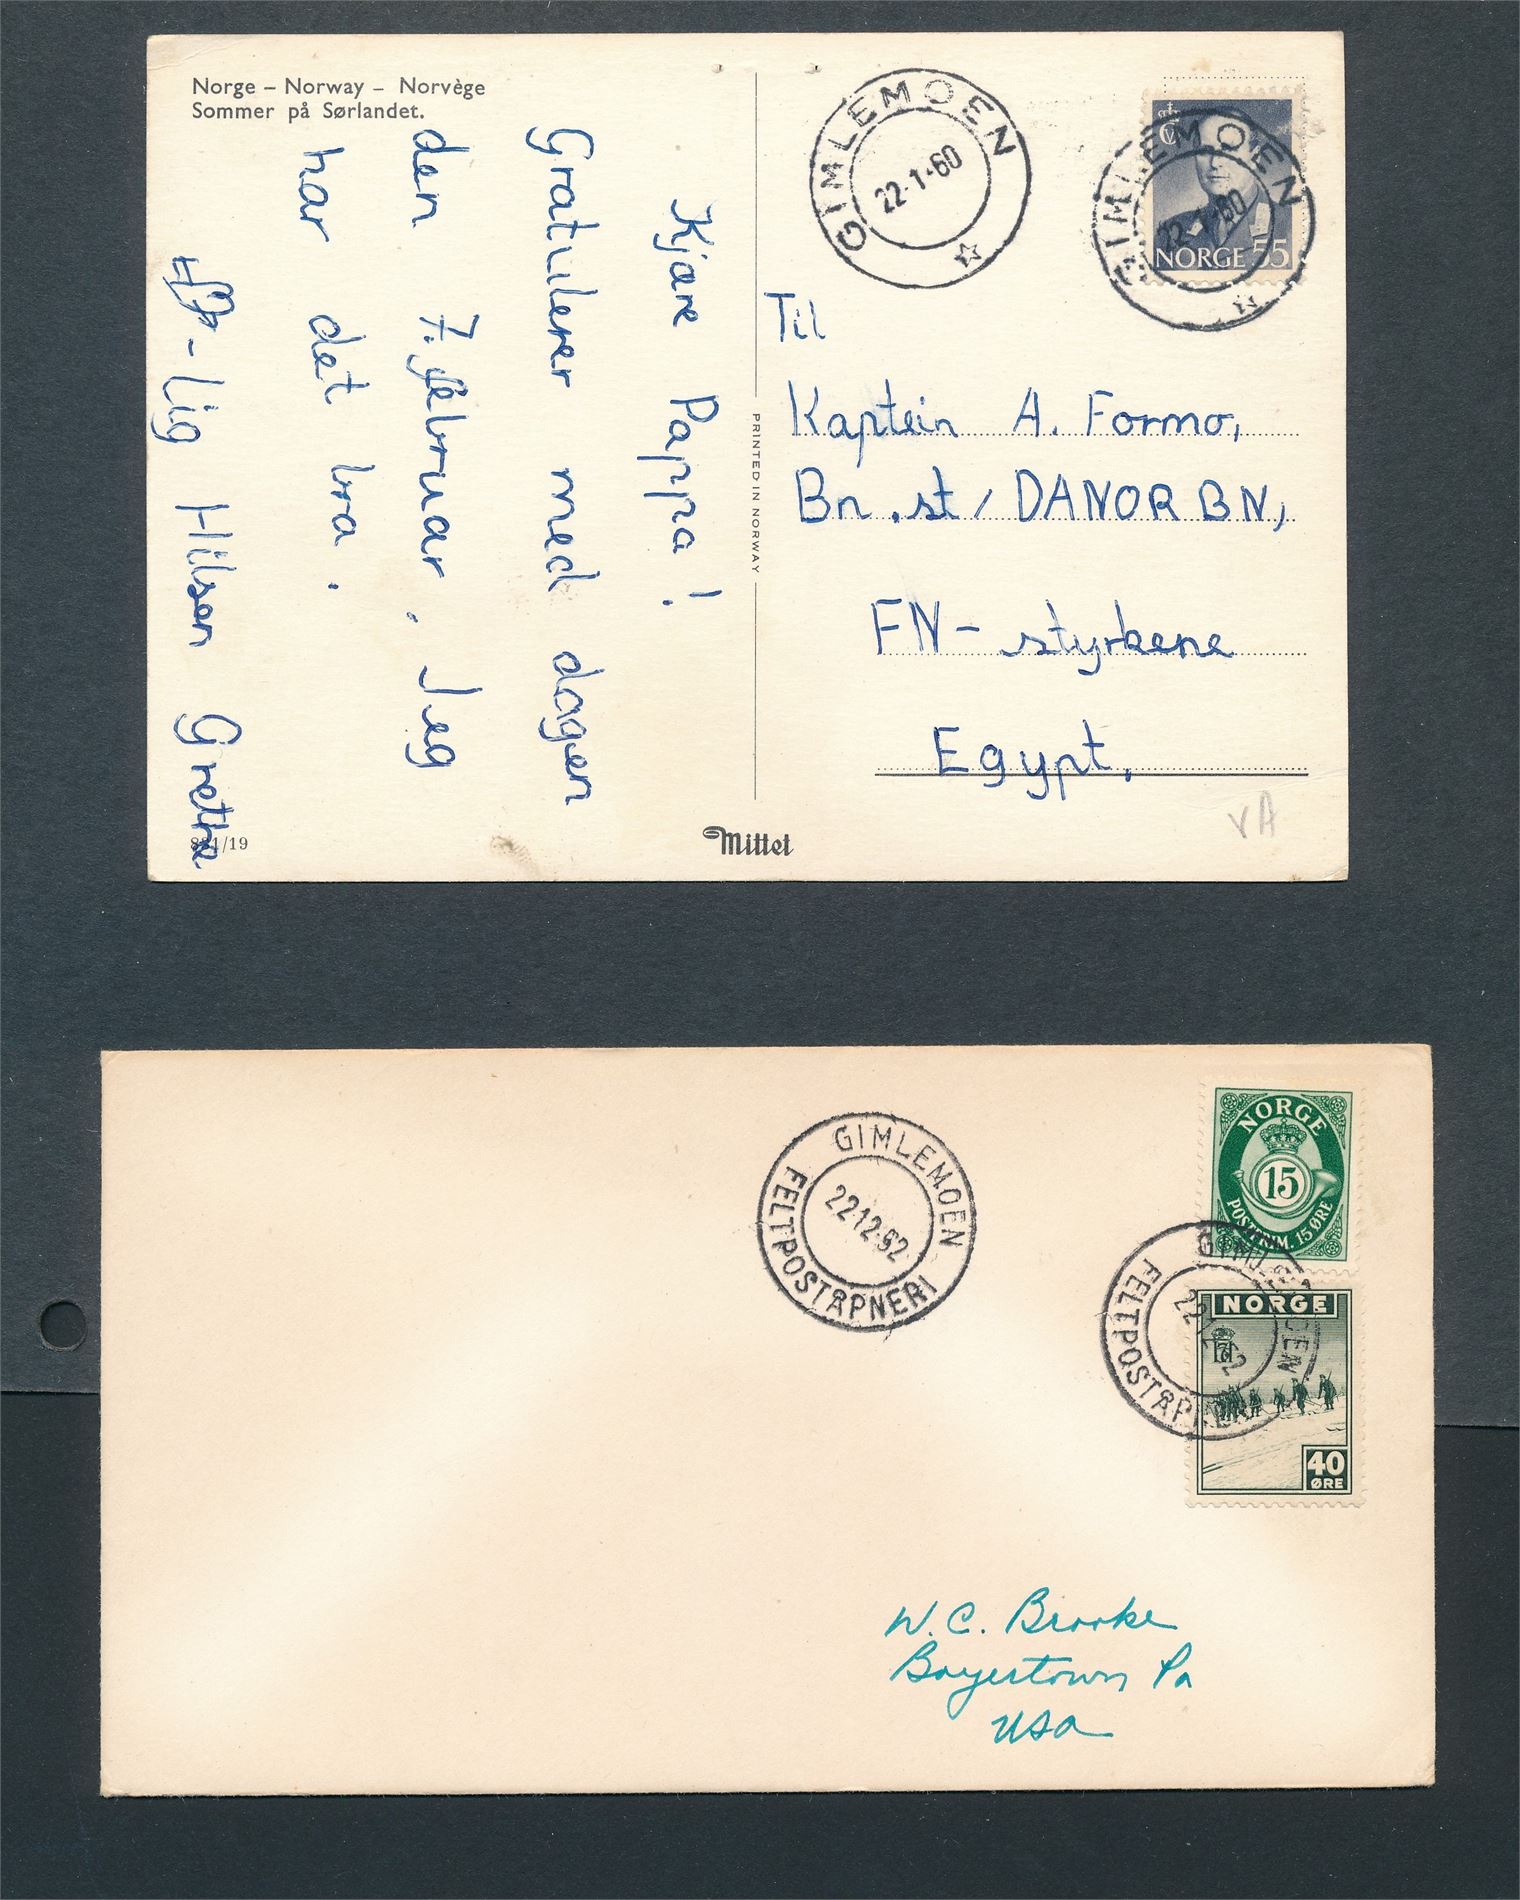 Norge – Norway – Norvège
Sommer på Sørlandet.
Kjære Pappa!
Gratulerer med dagen
den 7. februar. Jeg
har det bra.
-lig Hilsen Grethe
821/19
PRINTED IN NORWAY
Mittet
GIMLEMOEN
22-1-60
GIMLEMOEN
22-1-60
NORGE 55
Til
Kaptein A. Formo,
Bn.st/ DANOR BN,
FN-styrkene
Egypt.
VA
GIMLEMOEN
22 12-52
FELTPOSTÅPNERI
NORGE
15
POSTFRIM. 15 ØRE
GIMLEMOEN
FELTPOSTÅPNERI
NORGE
40
ØRE
W. C. Brooke
Boyertown Pa
USA